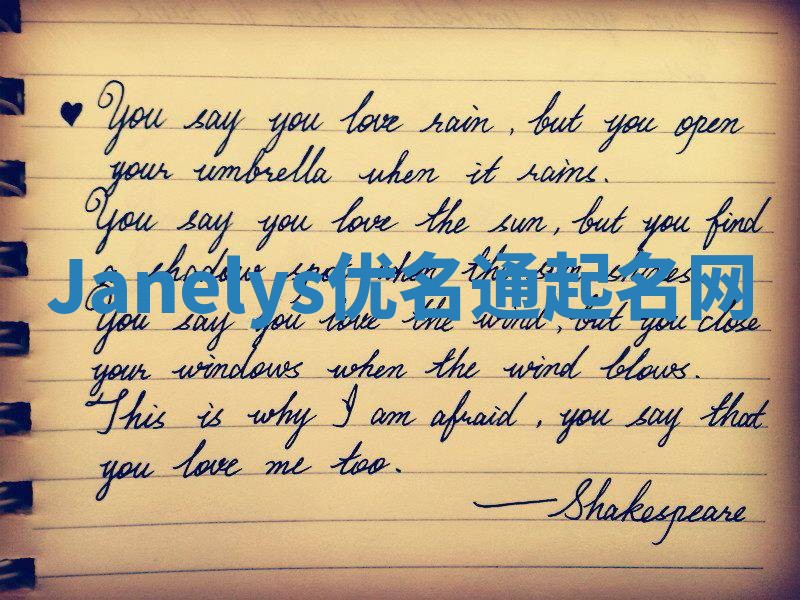 ♥ You say you love rain, but you open
your umbrella when it rains.
You say you love the sun, but you find
a shadow spot when the sun shines.
Janelys优名通起名网
You say you love the wind, but you close
your windows when the wind blows.
This is why I am afraid, you say that
you love me too.
—Shakespeare